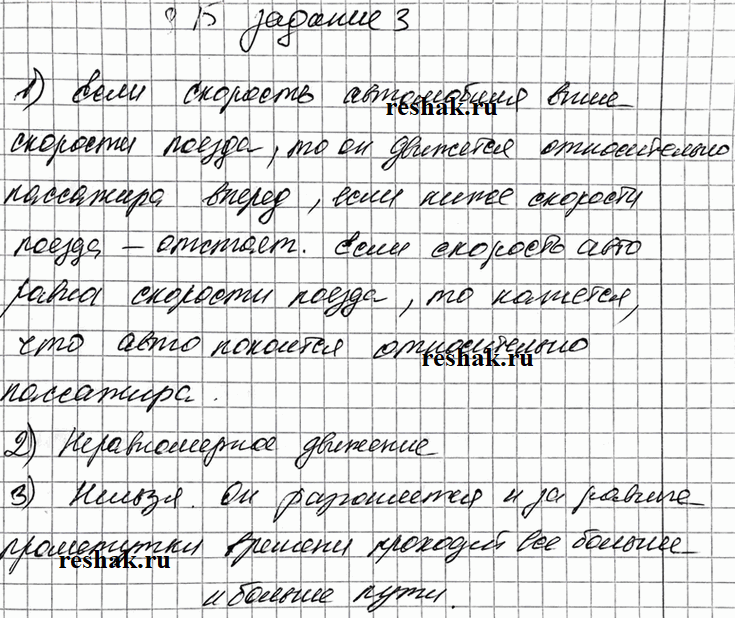 § 15 задание 3
1) Если скорость автомобиля выше
скорости поезда, то он движется относительно
пассажира вперед, если ниже скорости
поезда – отстает. Если скорость авто
равна скорости поезда, то кажется,
что авто покоится относительно
пассажира.
2) Неравномерное движение
3) Нельзя. Он разгоняется и за равные
промежутки времени проходит все больше
и больше пути.
reshak.ru
reshak.ru
reshak.ru